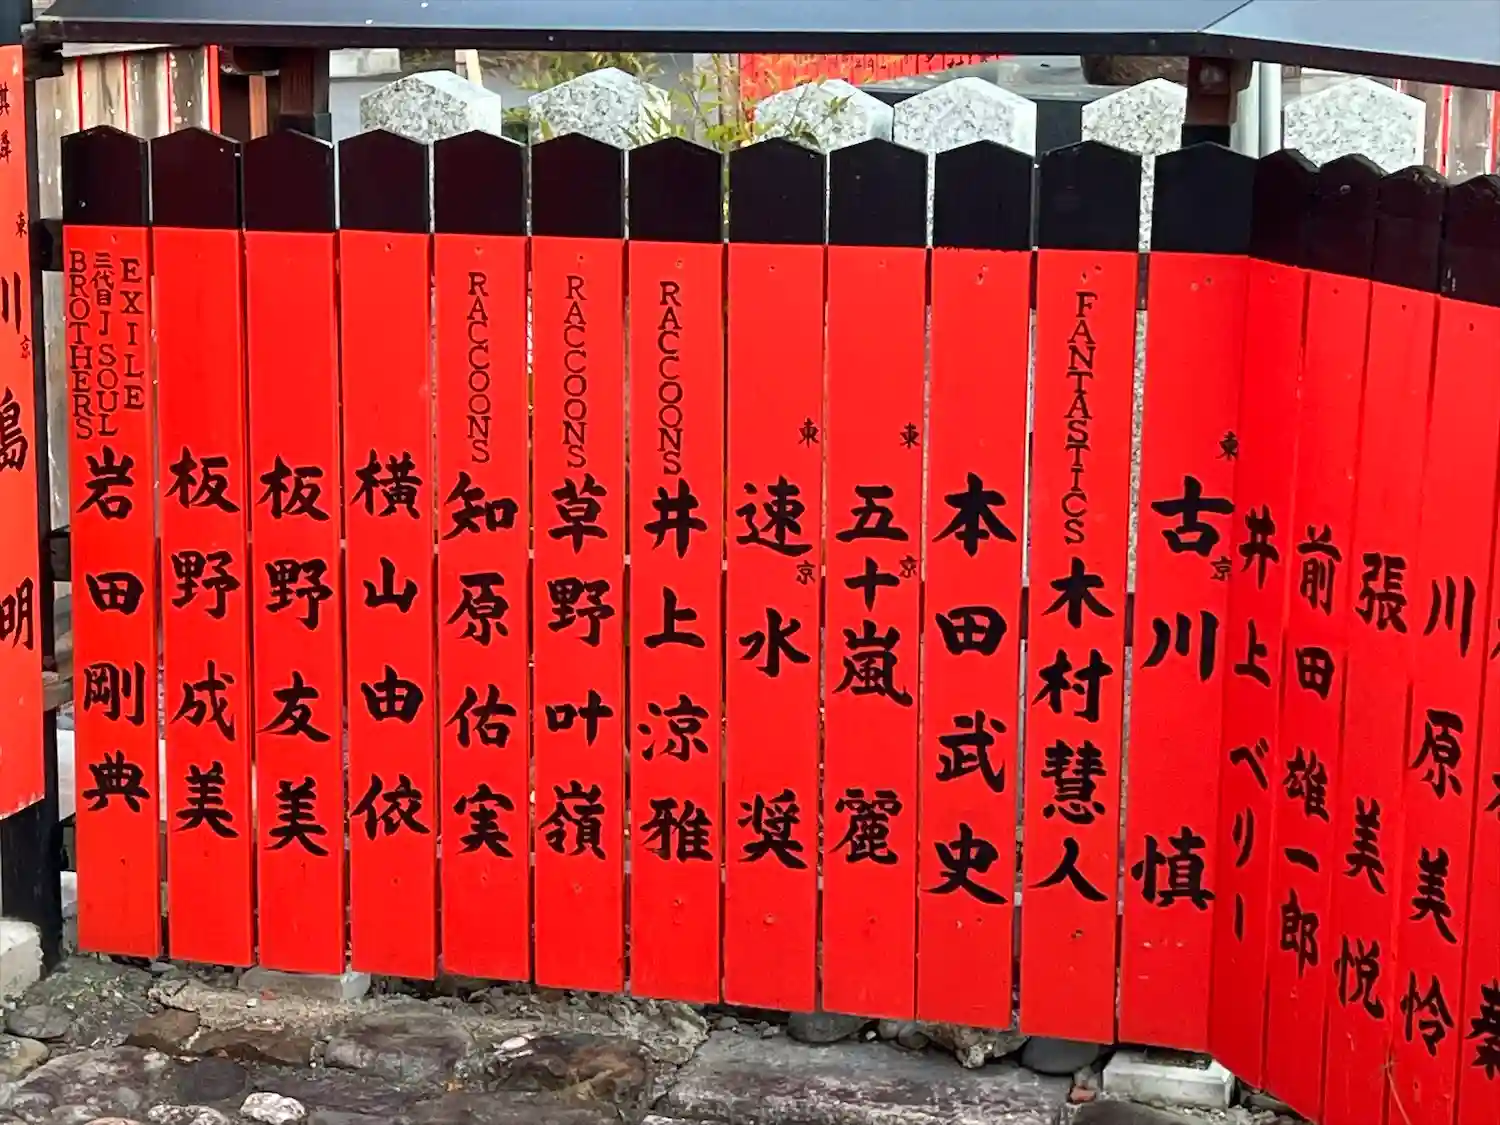 EXILE
三代目 J SOUL
BROTHERS
岩田剛典
板野成美
板野友美
横山由依
RACCOONS
知原佑実
RACCOONS
草野叶嶺
RACCOONS
井上涼雅
東京
速水奨
東京
五十嵐麗
本田武史
FANTASTICS
木村慧人
東京
古川慎
井上ベリー
前田雄一郎
張美悦
川原美怜
東京
川島明